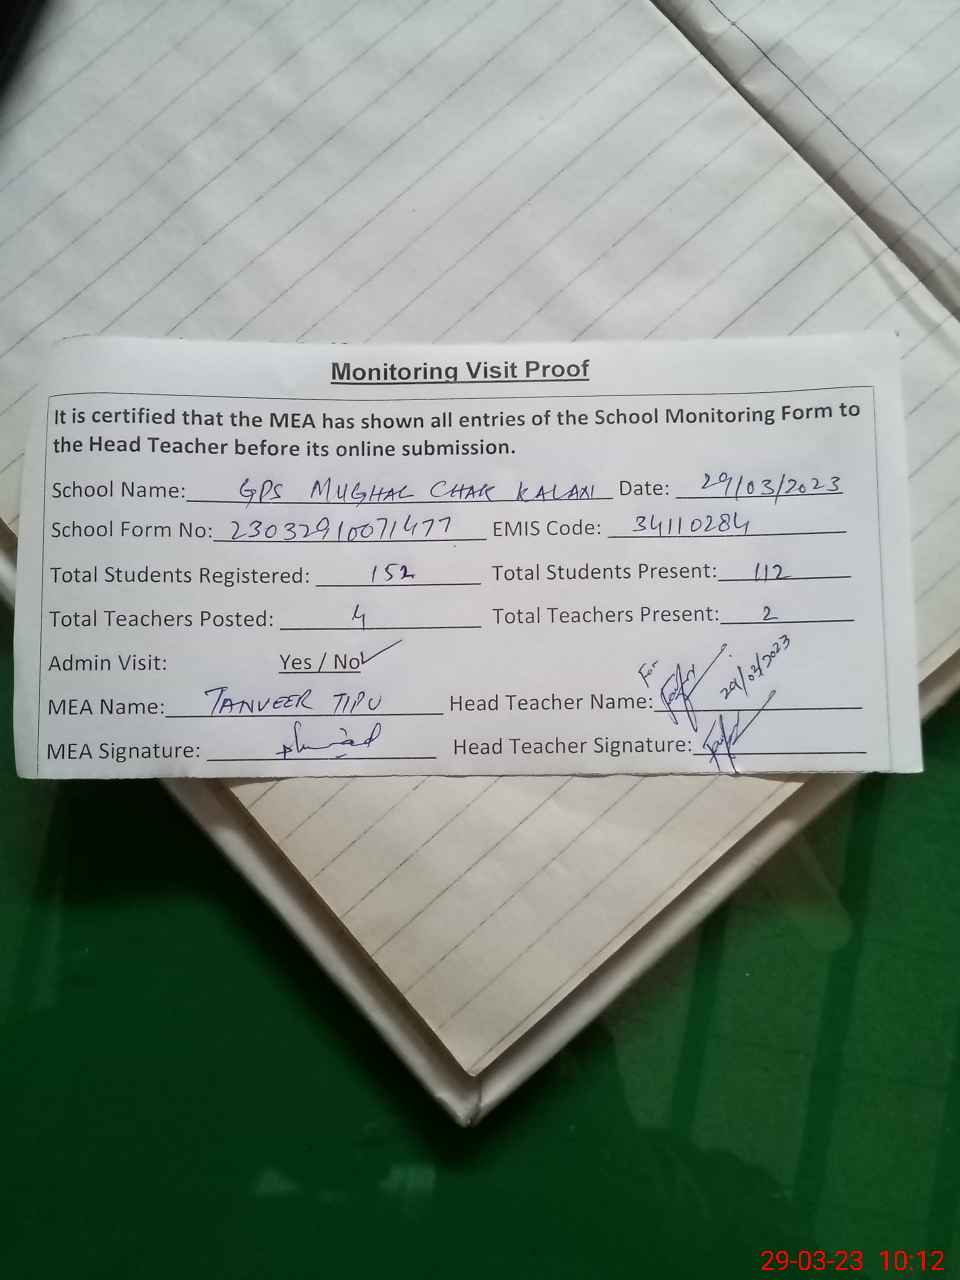 Monitoring Visit Proof
It is certified that the MEA has shown all entries of the School Monitoring Form to
the Head Teacher before its online submission.
School Name: GPS MUGHAL CHAK KALAN Date: 29/03/2023
School Form No: 23032910071477 EMIS Code: 34110284
Total Students Registered: 152 Total Students Present: 112
Total Teachers Posted: 4 Total Teachers Present: 2
Admin Visit: Yes / No ✓
MEA Name: TANVEER TIPU Head Teacher Name: For 29/03/2023
MEA Signature: Head Teacher Signature:
29-03-23 10:12